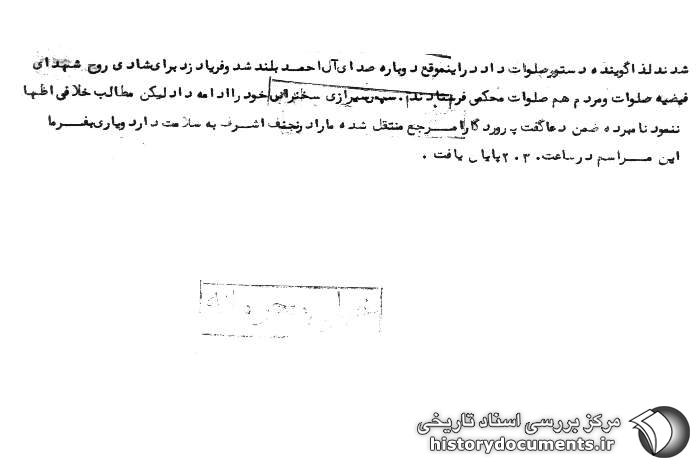 شدند لذا گوینده دستور صلوات داد در اینموقع دوباره صدای آل احمد بلند شد و فریاد زد برای شادی روح شهدای
فیضیه صلوات و مردم هم صلوات محکمی فرستادند. سپس شیرازی سخنرانی خود را ادامه داد لیکن مطالب خلافی اظهار
ننمود نامبرده ضمن دعا گفت پروردگارا مرجع منتقل شده ما را در نجف اشرف به سلامت دارد و یاری بفرما
این مراسم در ساعت ۲۰۳۰ پایان یافت.
مرکز بررسی اسناد تاریخی
historydocuments.ir